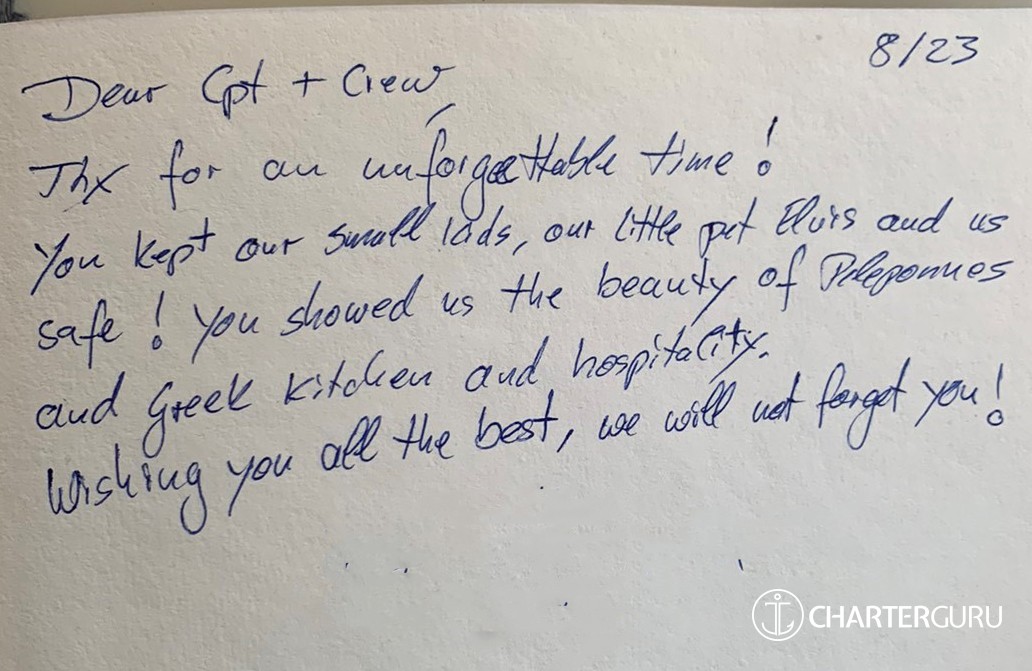 8/23
Dear Cpt + Crew,
Thx for an unforgettable time!
You kept our small lads, our little pet Elvis and us
safe! You showed us the beauty of
and Greek kitchen and hospitality.
Wishing you all the best, we will not forget you!
CHARTERGURU